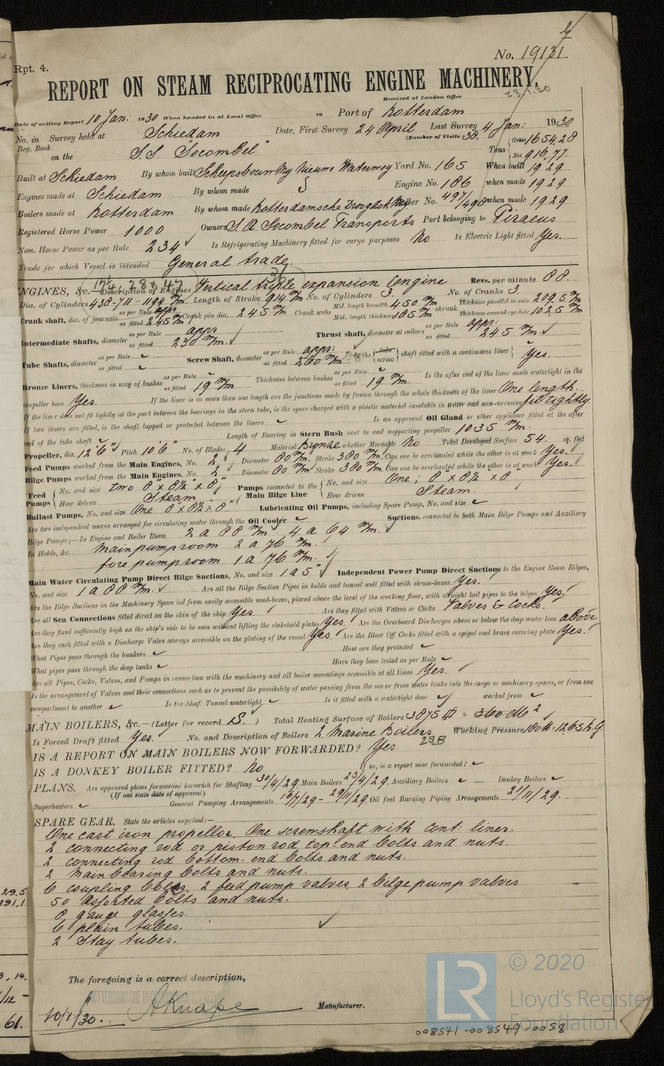 Rpt. 4.
No. 19131
REPORT ON STEAM RECIPROCATING ENGINE MACHINERY.
23.1.30
Received at London Office
Date of writing Report 10 Jan. 1930 When handed in at Local Office 19 Port of Rotterdam
No. in Reg. Book. Survey held at Schiedam Date, First Survey 24 April Last Survey 4 Jan: 1930
(Number of Visits 38.)
on the S.S. "Socombel" Tons Gross 1654.28 Net 916.77
Built at Schiedam By whom built Scheepsbouw My Nieuwe Waterweg Yard No. 165 When built 1929
Engines made at Schiedam By whom made Engine No. 186 when made 1929
Boilers made at Rotterdam By whom made Rotterdamsche Droogdok My Boiler No. 497/498 when made 1929
Registered Horse Power 1000 Owners S.A. Socombel Transports Port belonging to Piraeus
Nom. Horse Power as per Rule 234 Is Refrigerating Machinery fitted for cargo purposes No Is Electric Light fitted Yes.
Trade for which Vessel is intended General trade
ENGINES, &c. Description of Engines Vertical triple expansion engine Revs. per minute 88.
Dia. of Cylinders Length of Stroke 914 m/m No. of Cylinders 3 No. of Cranks 3
Crank shaft, dia. of journals as per Rule appr. as fitted 245 m/m Crank pin dia. 245 m/m Crank webs Mid. length breadth 450 m/m Mid. length thickness 105 m/m shrunk Thickness parallel to axis 209.5 m/m Thickness around eye-hole 102.5 m/m
Intermediate Shafts, diameter as per Rule appr. as fitted 230 m/m Thrust shaft, diameter at collars as per Rule appr. as fitted 245 m/m
Tube Shafts, diameter as per Rule as fitted Screw Shaft, diameter as per Rule appr. as fitted 260 m/m Is the tube screw shaft fitted with a continuous liner Yes.
Bronze Liners, thickness in way of bushes as per Rule as fitted 19 m/m Thickness between bushes as per Rule as fitted 19 m/m Is the after end of the liner made watertight in the
propeller boss Yes. If the liner is in more than one length are the junctions made by fusion through the whole thickness of the liner One length
If the liner does not fit tightly at the part between the bearings in the stern tube, is the space charged with a plastic material insoluble in water and non-corrosive fit tightly
If two liners are fitted, is the shaft lapped or protected between the liners Is an approved Oil Gland or other appliance fitted at the after
end of the tube shaft Length of Bearing in Stern Bush next to and supporting propeller 1035 m/m.
Propeller, dia. 12'6" Pitch 10'6" No. of Blades 4 Material Bronze whether Moveable No Total Developed Surface 54. sq. feet
Feed Pumps worked from the Main Engines, No. 2 Diameter 80 m/m Stroke 380 m/m Can one be overhauled while the other is at work Yes.
Bilge Pumps worked from the Main Engines, No. 2 Diameter 80 m/m Stroke 380 m/m Can one be overhauled while the other is at work Yes.
Feed Pumps No. and size two 8" x 8½" x 8" How driven Steam Pumps connected to the Main Bilge Line No. and size One; 8" x 8½" x 8" How driven Steam
Ballast Pumps, No. and size One 8" x 8½" x 8" Lubricating Oil Pumps, including Spare Pump, No. and size
Are two independent means arranged for circulating water through the Oil Cooler Suctions, connected to both Main Bilge Pumps and Auxiliary
Bilge Pumps:- In Engine and Boiler Room 2 a 88 m/m 4 a 64 m/m.
In Holds, &c. Main pump room 2 a 76 m/m.
fore pump room 1 a 76 m/m.
Main Water Circulating Pump Direct Bilge Suctions, No. and size 1 a 5" Independent Power Pump Direct Suctions to the Engine Room Bilges,
No. and size 1 a 88 m/m. Are all the Bilge Suction Pipes in holds and tunnel well fitted with strum-boxes Yes.
Are the Bilge Suctions in the Machinery Space led from easily accessible mud-boxes, placed above the level of the working floor, with straight tail pipes to the bilges Yes.
Are all Sea Connections fitted direct on the skin of the ship Yes. Are they fitted with Valves or Cocks Valves & Cocks.
Are they fixed sufficiently high on the ship's side to be seen without lifting the stokehold plates Yes. Are the Overboard Discharges above or below the deep water line above
Are they each fitted with a Discharge Valve always accessible on the plating of the vessel Yes. Are the Blow Off Cocks fitted with a spigot and brass covering plate Yes.
What Pipes pass through the bunkers How are they protected
What pipes pass through the deep tanks Have they been tested as per Rule
Are all Pipes, Cocks, Valves, and Pumps in connection with the machinery and all boiler mountings accessible at all times Yes.
Is the arrangement of Valves and their connections such as to prevent the possibility of water passing from the sea or from water tanks into the cargo or machinery spaces, or from one
compartment to another Is the Shaft Tunnel watertight Is it fitted with a watertight door worked from
MAIN BOILERS, &c.—(Letter for record S.) Total Heating Surface of Boilers 3875 = 360 M²
Is Forced Draft fitted Yes. No. and Description of Boilers 2 Marine Boilers Working Pressure
2SB
IS A REPORT ON MAIN BOILERS NOW FORWARDED? Yes.
IS A DONKEY BOILER FITTED? No If so, is a report now forwarded?
PLANS. Are approved plans forwarded herewith for Shafting 30/4/29 Main Boilers 23/4/29 Auxiliary Boilers Donkey Boilers
(If not state date of approval)
Superheaters General Pumping Arrangements Oil fuel Burning Piping Arrangements 21/11/29.
SPARE GEAR. State the articles supplied:—
One cast iron propeller. One screwshaft with cont. liner.
2 connecting rod or piston rod top end bolts and nuts.
2 connecting rod bottom-end bolts and nuts.
2 main bearing bolts and nuts.
6 coupling bolts, 2 feed pump valves. 2 bilge pump valves
50 Assorted bolts and nuts.
8 gauge glasses.
6 plain tubes.
2 Stay tubes.
The foregoing is a correct description,
10/1/30. AKnape Manufacturer.
© 2020
LR
Lloyd's Register
Foundation
008541-008549-0058